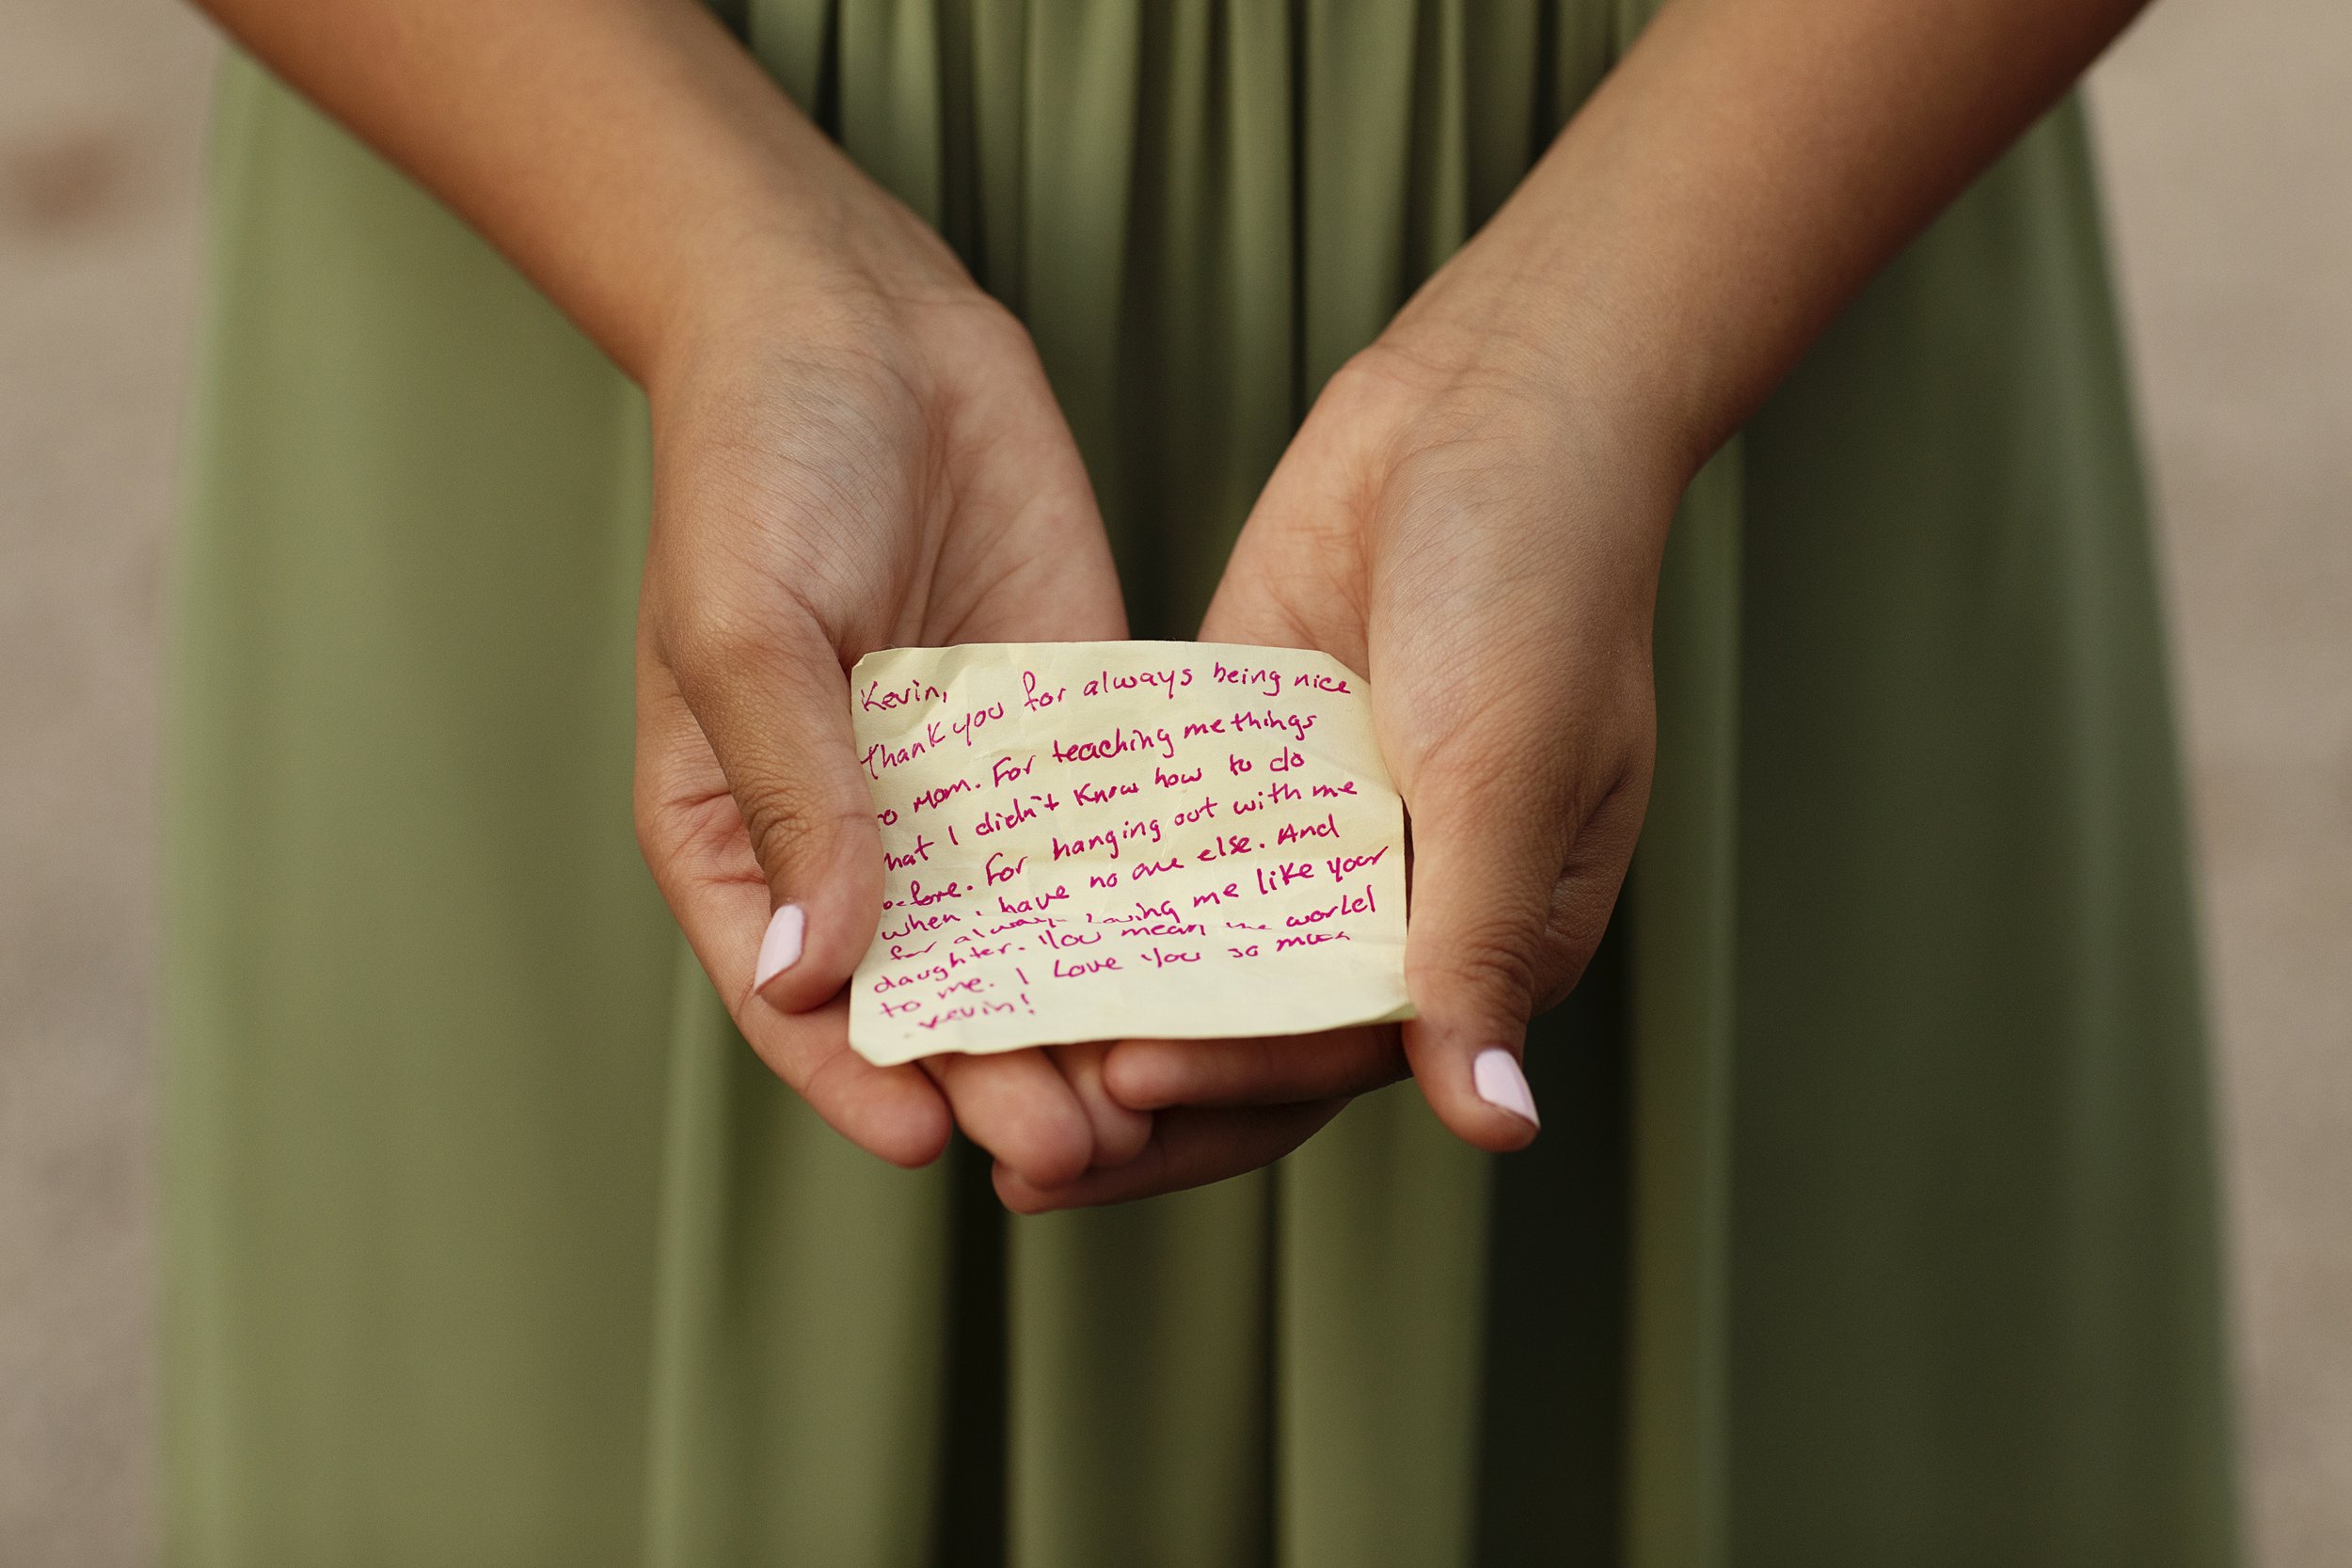 Kevin,
Thank you for always being nice
to Mom. For teaching me things
that I didn't know how to do
before. For hanging out with me
when I have no one else. And
for always loving me like your
daughter. You mean the world
to me. I Love You so much
Kevin!